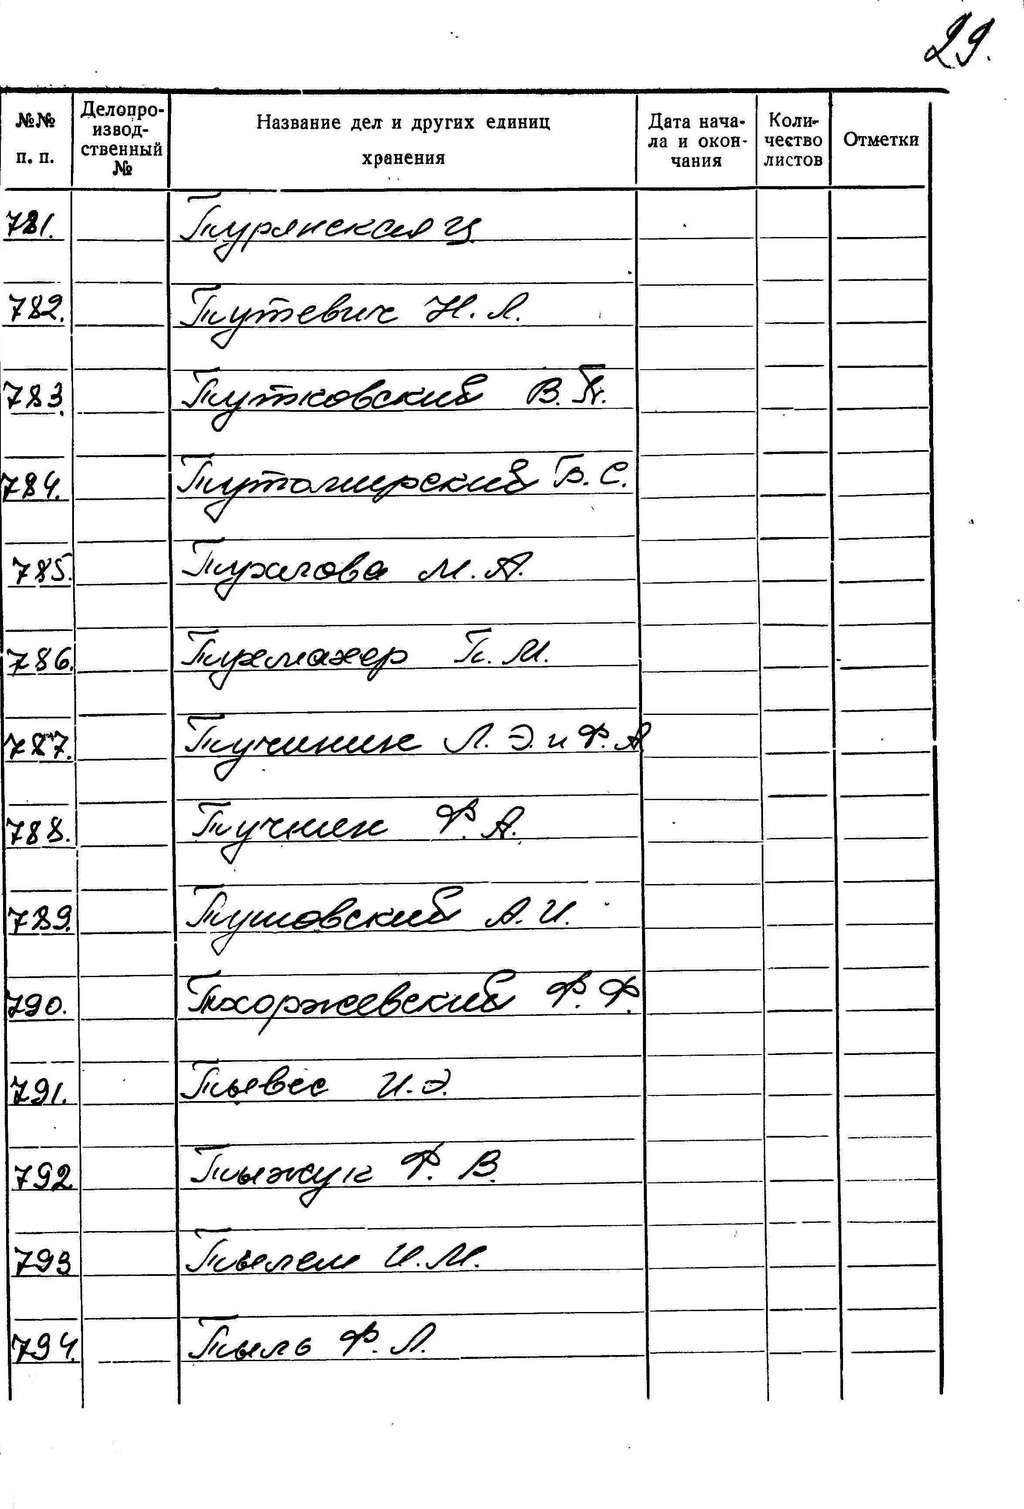 29.
№№ п. п.
Делопро-
извод-
ственный
№
Название дел и других единиц
хранения
Дата нача-
ла и окон-
чания
Коли-
чество
листов
Отметки
781. Турянская Ц
782. Тутевич Н. Л.
783. Тутковский В. П.
784. Тутомирский Б. С.
785. Тухагова М. А.
786. Тухмахер П. М.
787. Тучиник Л. Э. и Ф. А
788. Тучник Ф. А.
789. Тушовский А. И.
790. Тхоржевский Ф. Ф.
791. Тьевес И. Э.
792 Тыжук Ф. В.
793 И. М.
794. Тыль Ф. Л.